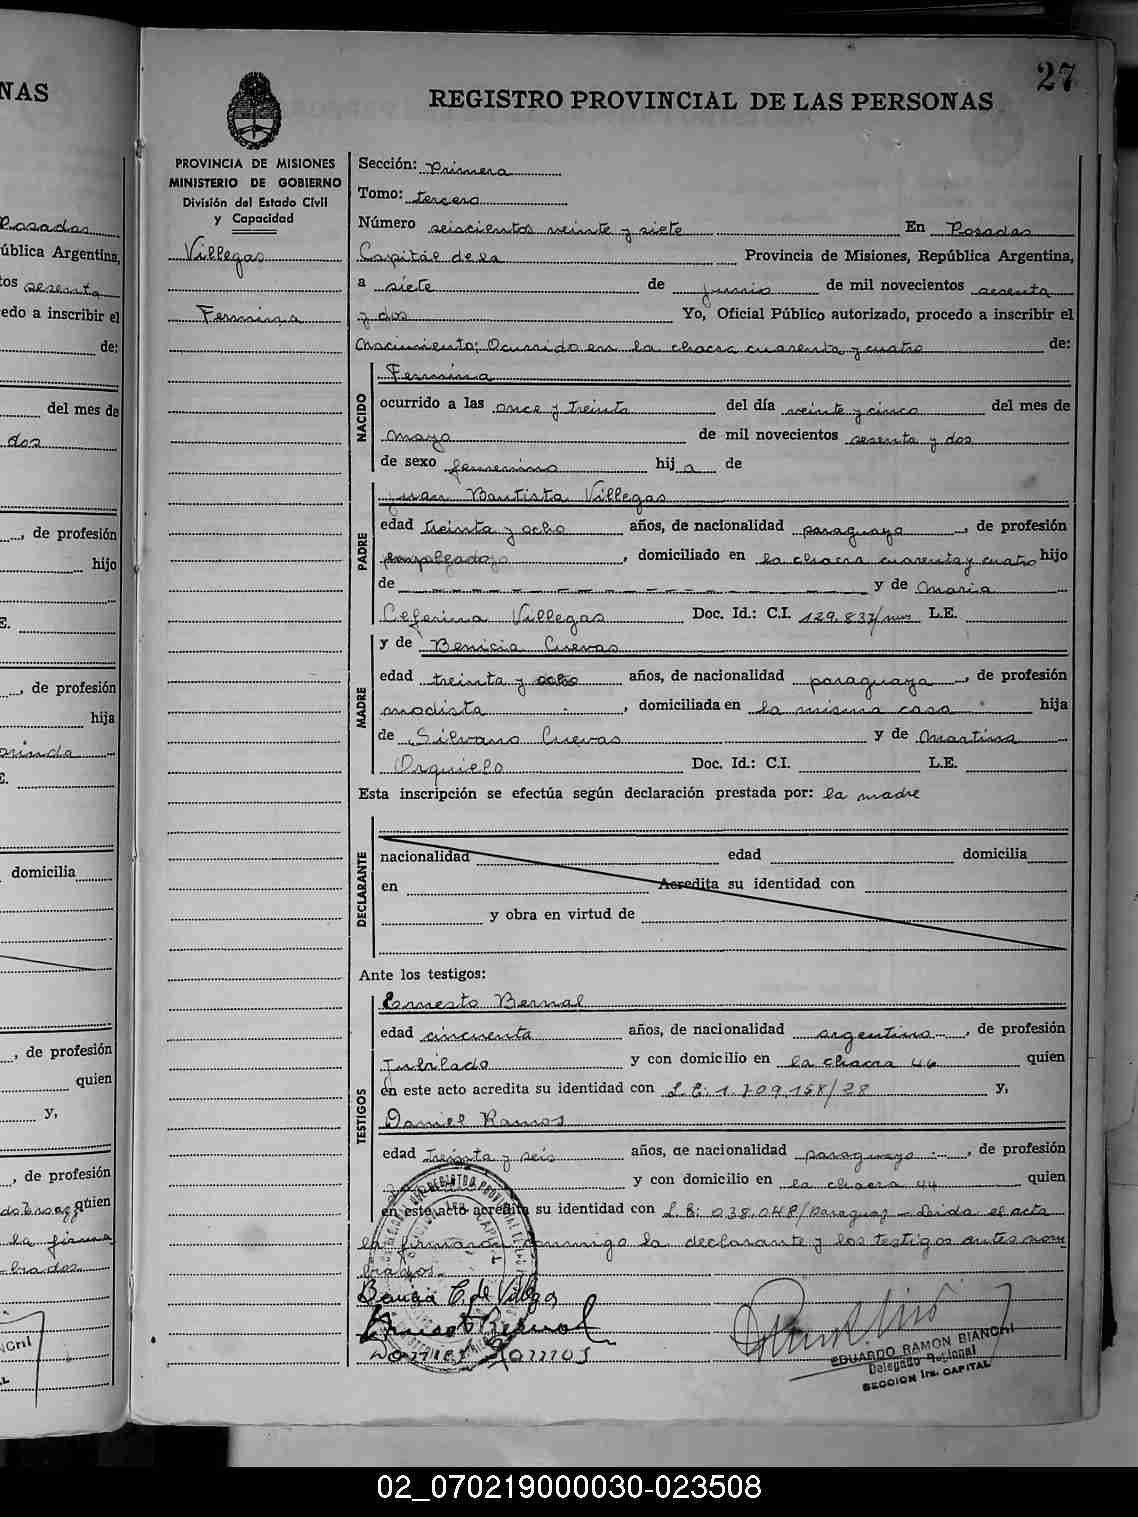 27
REGISTRO PROVINCIAL DE LAS PERSONAS
PROVINCIA DE MISIONES
MINISTERIO DE GOBIERNO
División del Estado Civil
y Capacidad
Villegas
Fermina
Sección: Primera
Tomo: tercero
Número seiscientos veinte y siete En Posadas
Capital de la Provincia de Misiones, República Argentina,
a siete de junio de mil novecientos sesenta
y dos Yo, Oficial Público autorizado, procedo a inscribir el
nacimiento; Ocurrido en la chacra cuarenta y cuatro de:
NACIDO
Fermina
ocurrido a las once y treinta del día veinte y cinco del mes de
mayo de mil novecientos sesenta y dos
de sexo femenino hija de
PADRE
Juan Bautista Villegas
edad treinta y ocho años, de nacionalidad paraguayo, de profesión
, domiciliado en la chacra cuarenta y cuatro hijo
de y de Maria
Ceferina Villegas Doc. Id.: C.I. 129.837/ L.E.
MADRE
y de Benicia Cuevas
edad treinta y ocho años, de nacionalidad paraguaya, de profesión
modista, domiciliada en la misma casa hija
de Silvano Cuevas y de Martina
Orquielo Doc. Id.: C.I. L.E.
Esta inscripción se efectúa según declaración prestada por: la madre
DECLARANTE
nacionalidad edad domicilia
en Acredita su identidad con
y obra en virtud de
Ante los testigos:
TESTIGOS
Ernesto Bernal
edad cincuenta años, de nacionalidad argentino, de profesión
Jubilado y con domicilio en la chacra 44 quien
en este acto acredita su identidad con L.E. 1.709.158/28 y,
Daniel Ramos
edad treinta y seis años, de nacionalidad paraguayo, de profesión
y con domicilio en la chacra 44 quien
en este acto acredita su identidad con L.E. 038.048/paraguay - Leida el acta
la firmaron conmigo la declarante y los testigos antes nom
brados.
C. de Villegas
Ernesto Bernal
Ramos
EDUARDO RAMON BIANCHI
Delegado Regional
SECCION 1ra. CAPITAL
NAS
Posadas
ública Argentina,
tos sesenta
edo a inscribir el
de:
del mes de
dos
, de profesión
hijo
E.
, de profesión
hija
E.
domicilia
, de profesión
quien
y,
, de profesión
quien
la firma
brados.
02_070219000030-023508